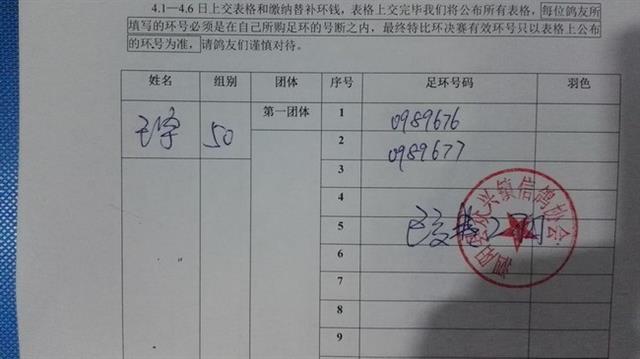 4.1—4.6日上交表格和缴纳替补环钱，表格上交完毕我们将公布所有表格，每位鸽友所
填写的环号必须是在自己所购足环的号断之内，最终特比环决赛有效环号只以表格上公布
的环号为准，请鸽友们谨慎对待。
姓名 组别 团体 序号 足环号码 羽色
50 第一团体 1 0989676
2 0989677
3
4
5 已交
6
7
8
9
泗阳县众兴镇信鸽协会